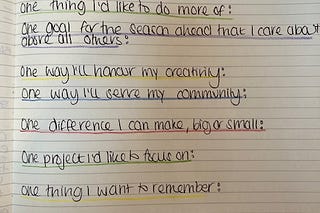 One thing I'd like to do more of:
One goal for the season ahead that I care about
above all others:
One way I'll honour my creativity:
One way I'll serve my community:
One difference I can make, big or small:
One project I'd like to focus on:
One thing I want to remember: